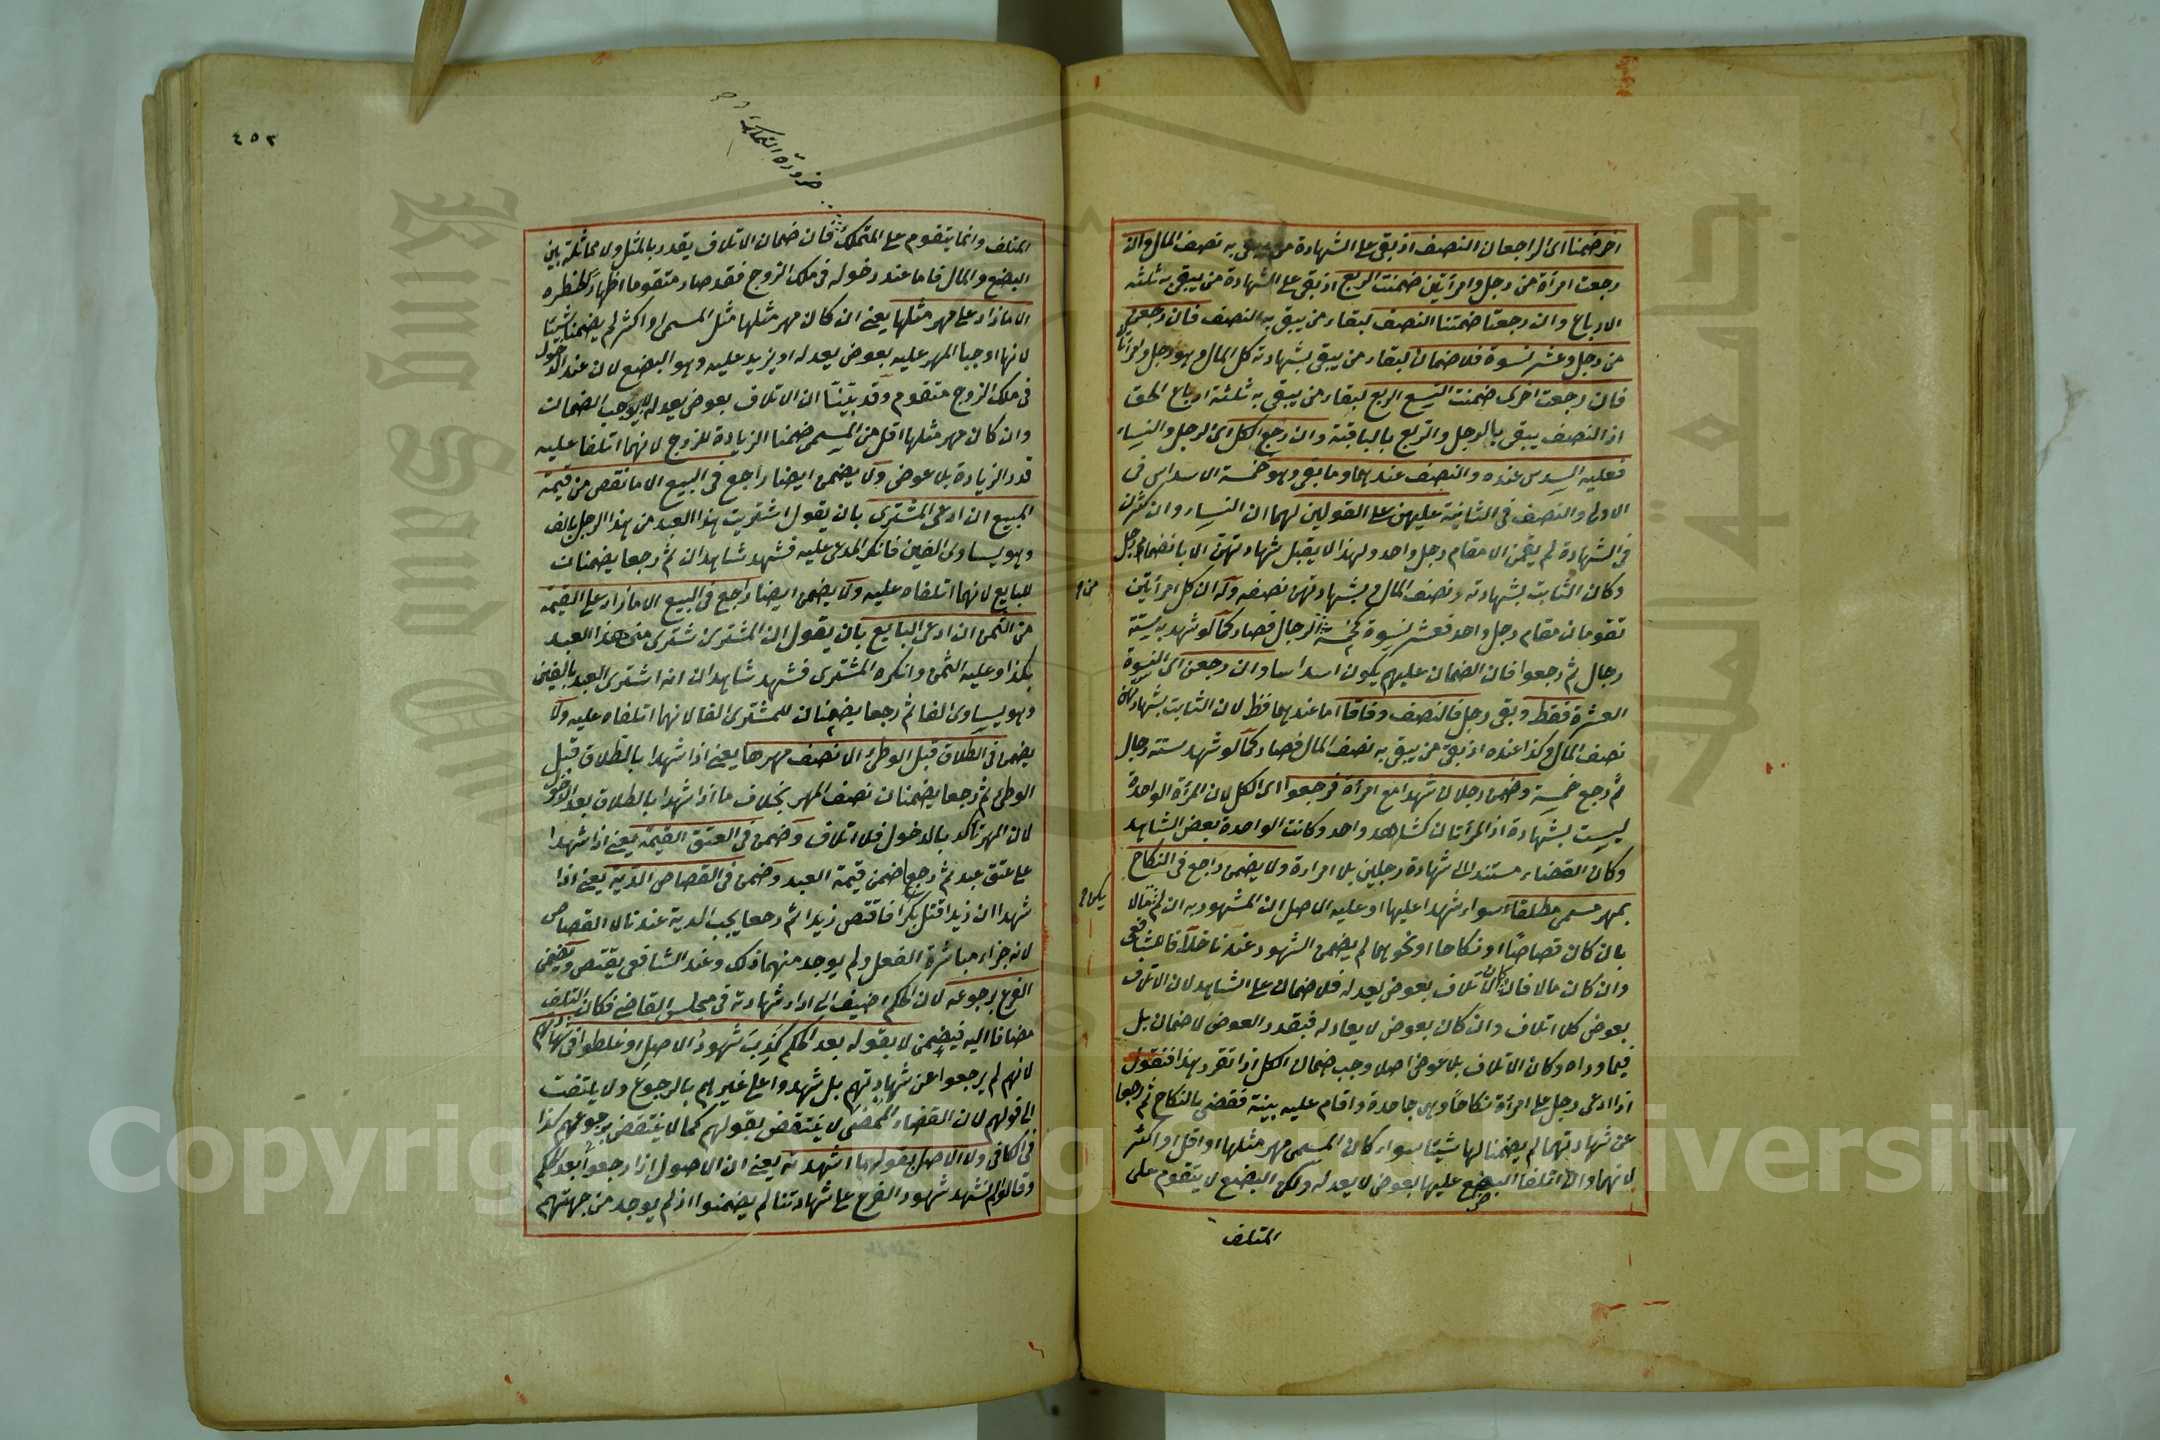 اخر ضمنا اى الراجعان النصف اذ بقى على الشهادة من يبقى به نصف المال وان
رجعت امرأة من رجل وامرأتين ضمنت الربع اذ بقى على الشهادة من يبقى به ثلثه
الارباع وان رجعتا ضمنتا النصف لبقاء من يبقى به النصف فان رجعن
من رجل وعشر نسوة فلا ضمان لبقاء من يبقى بشهادته كل المال وهو رجل وامرأتان
فان رجعت اخرى ضمنت التسع الربع لبقاء من يبقى به ثلثة ارباع الحق
اذ النصف يبقى بالرجل والربع بالباقية وان رجع الكل اى الرجل والنساء
فعليه السدس عنده والنصف عندهما وما بقى وهو خمسة الاسداس فى
الاولى والنصف فى الثانية عليهن على القولين لهما ان النساء وان كثرن
فى الشهادة لم يقمن الا مقام رجل واحد ولهذا لا يقبل شهادتهن الا بانضمام رجل
من م
وكان الثابت بشهادته نصف المال و بشهادتهن نصفه وله ان كل امرأتين
تقومان مقام رجل واحد فعشر نسوة كخمسة من الرجال فصار كما لو شهد به ستة
رجال ثم رجعوا فان الضمان عليهم يكون اسداسا وان رجعن اى النسوة
العشرة فقط وبقى رجل فالنصف وفاقا اما عندهما فظ لان الثابت بشهادته
نصف المال وكذا عنده اذ بقى من يبقى به نصف المال فصار كما لو شهد ستة رجال
ثم رجع خمسة وضمن رجلان شهدا مع امرأة فرجعوا اى الكل لان المرأة الواحدة
ليست بشهادة اذ المرأتان كشاهد واحد وكانت الواحدة بعض الشاهد
وكان القضاء مستندا الى شهادة رجلين بلا امرأة ولا يضمن راجع فى النكاح
يكن م
بمهر مسمى مطلقا سواء شهدا عليها او عليه الاصل ان المشهود به ان لم مالا
بان كان قصاصا او نكاحا او نحوهما لم يضمن الشهود عندنا خلافا للشافعى
وان كان مالا فان كان الاتلاف بعوض يعدله فلا ضمان على الشاهد لان الاتلاف
بعوض كلا اتلاف وان كان بعوض لا يعادله فبقدر العوض لا ضمان بل
فيما وراه وكان الاتلاف بلا عوض اصلا وجب ضمان الكل اذا تقرر هذا فنقول
اذا ادعى رجل على امرأة نكاحا وهى جاحدة واقام عليه بينة فقضى بالنكاح ثم رجعا
عن شهادتهما لم يضمنا لها شيئا سواء كان المسمى مهر مثلها او اقل او اكثر
لانهما وان اتلفا البضع عليها بعوض لا يعدله ولكن البضع لا يتقوم على
المتلف
٤٥٣
ضرورة التملك
المتلف وانما يتقوم على المتملك فان ضمان الاتلاف يقدر بالمثل ولا مماثلة بين
البضع والمال فاما عند دخوله فى ملك الزوج فقد صار متقوما اظهارا لخطره
الا ما زاد على مهر مثلها يعنى ان كان مهر مثلها مثل المسمى او اكثر لم يضمنا شيئا
لانها اوجبا المهر عليه بعوض يعدله او يزيد عليه وهو البضع لان عند الدخول
فى ملك الزوج متقوم وقد بينا ان الاتلاف بعوض يعدله لا يوجب الضمان
وان كان مهر مثلها اقل من المسمى ضمنا الزيادة للزوج لانهما اتلفا عليه
قدر الزيادة بلا عوض ولا يضمن ايضا راجع فى البيع الا ما نقص من قيمة
المبيع ان ادعى المشترى بان يقول اشتريت هذا العبد من هذا الرجل بالف
وهو يساوى الفين فانكر المدعى عليه فشهد شاهدان ثم رجعا يضمنان
للبايع لانهما اتلفاه عليه ولا يضمن ايضا راجع فى البيع الا ما زاد على القيمة
من الثمن ان ادعى البايع بان يقول ان المشترى اشترى منى هذا العبد
بكذا وعليه الثمن وانكره المشترى فشهد شاهدان انه اشترى العبد بالفين
وهو يساوى الفا ثم رجعا يضمنان للمشترى الفا لانهما اتلفاه عليه ولا
يضمن فى الطلاق قبل الوطئ الا نصف مهرها يعنى اذا شهدا بالطلاق قبل
الوطئ ثم رجعا يضمنان نصف المهر بخلاف ما اذا شهدا بالطلاق بعد الدخول
لان المهر تأكد بالدخول فلا اتلاف وضمن فى العتق القيمة يعنى اذا شهدا
على عتق عبد ثم رجعا ضمن قيمة العبد وضمن فى القصاص الدية يعنى اذا
شهدا ان زيدا قتل بكرا فاقتص زيدا ثم رجعا يجب الدية عندنا لا القصاص
لانه جزاء مباشرة الفعل ولم يوجد منهما ذلك وعند الشافعى يقتص ويضمن
الفرع برجوعه لان الحكم اضيف الى اداء شهادته فى مجلس القاضى فكان التلف
مضافا اليه فيضمن لا بقوله بعد الحكم كذب شهود الاصل او غلطوا فى شهادتهم
لانهم لم يرجعوا عن شهادتهم بل شهدوا على غيرهم بالرجوع ولا يلتفت
الى قولهم لان القضاء الممضى لا ينتقض بقولهم كما لا ينتقض برجوعهم كذا
فى الكافى ولا الاصل بقولهما اشهدته يعنى ان الاصول اذا رجعوا بعد الحكم
وقالوا لم نشهد شهود الفرع على شهادتنا لم يضمنوا اذ لم يوجد من جهتهم